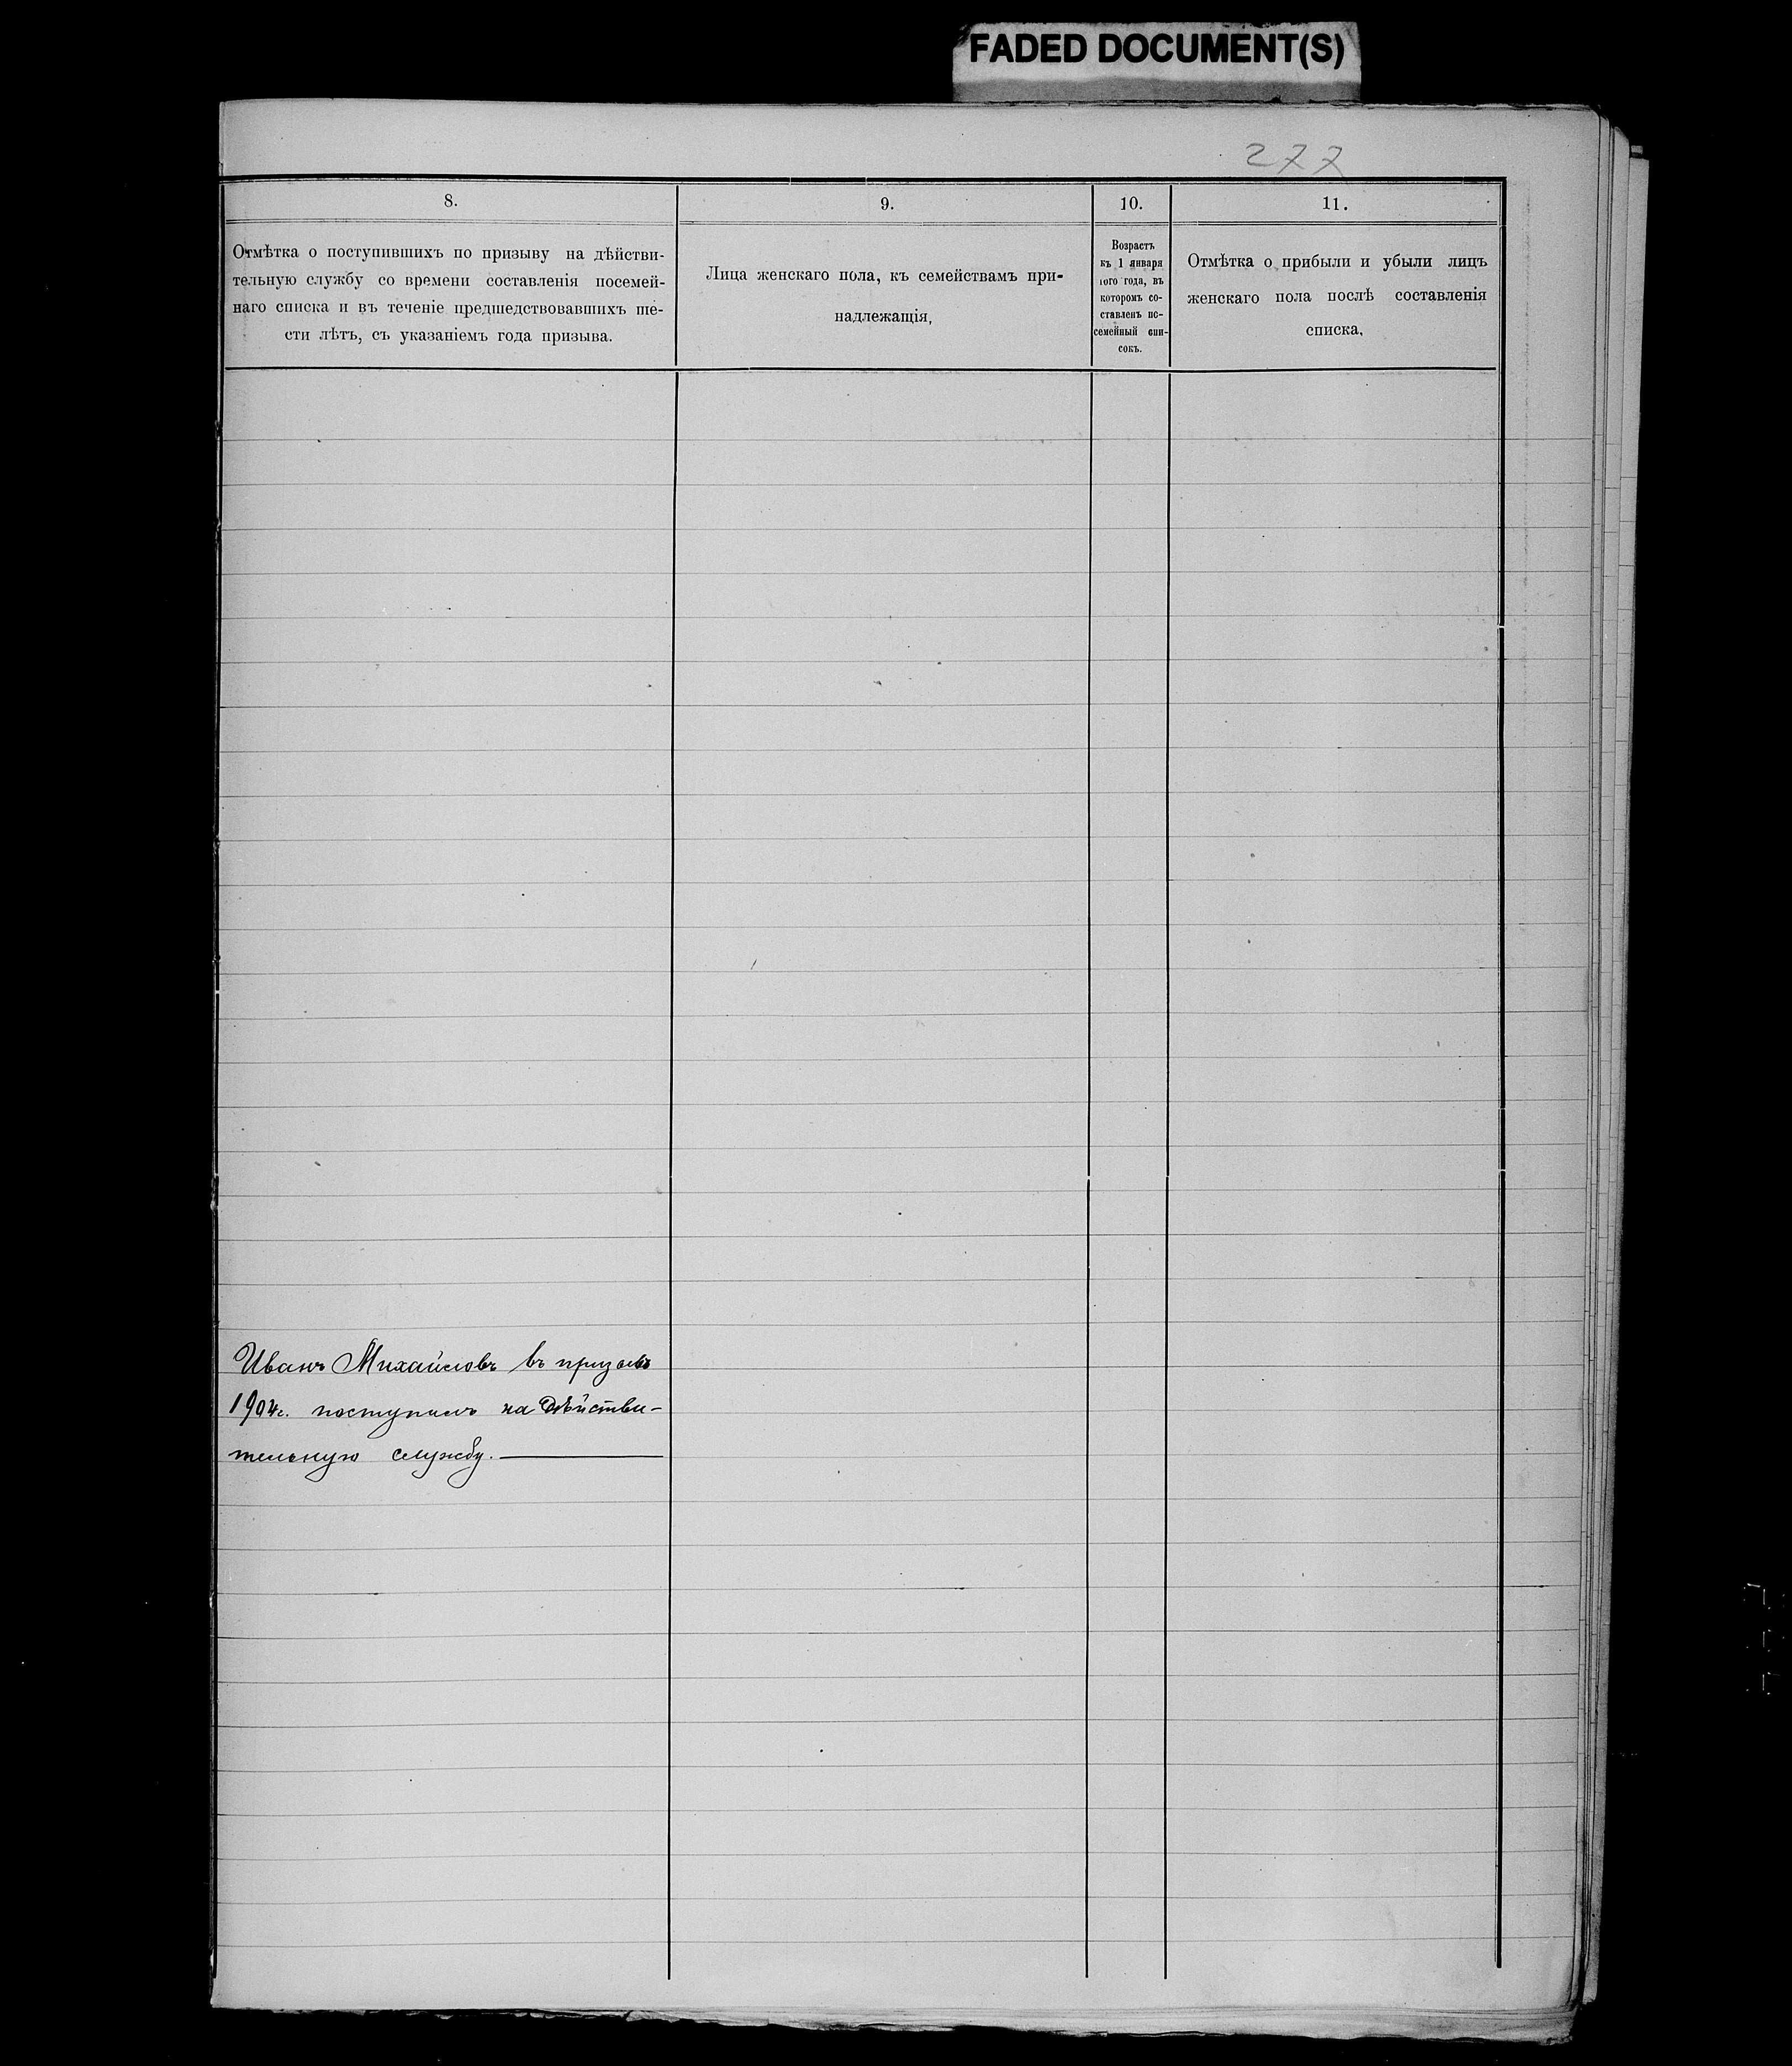 FADED DOCUMENT(S)
277
8.
Отмѣтка о поступившихъ по призыву на дѣйстви-
тельную службу со времени составленія посемей-
наго списка и въ теченіе предшедствовавшихъ ше-
сти лѣтъ, съ указаніемъ года призыва.
9.
Лица женскаго пола, къ семействамъ при-
надлежащія,
10.
Возрастъ
къ 1 января
того года, въ
которомъ со-
ставленъ по-
семейный спи-
сокъ.
11.
Отмѣтка о прибыли и убыли лицъ
женскаго пола послѣ составленія
списка,
Иванъ Михайловъ въ призывъ
1904г. поступилъ на дѣйстви-
тельную службу.